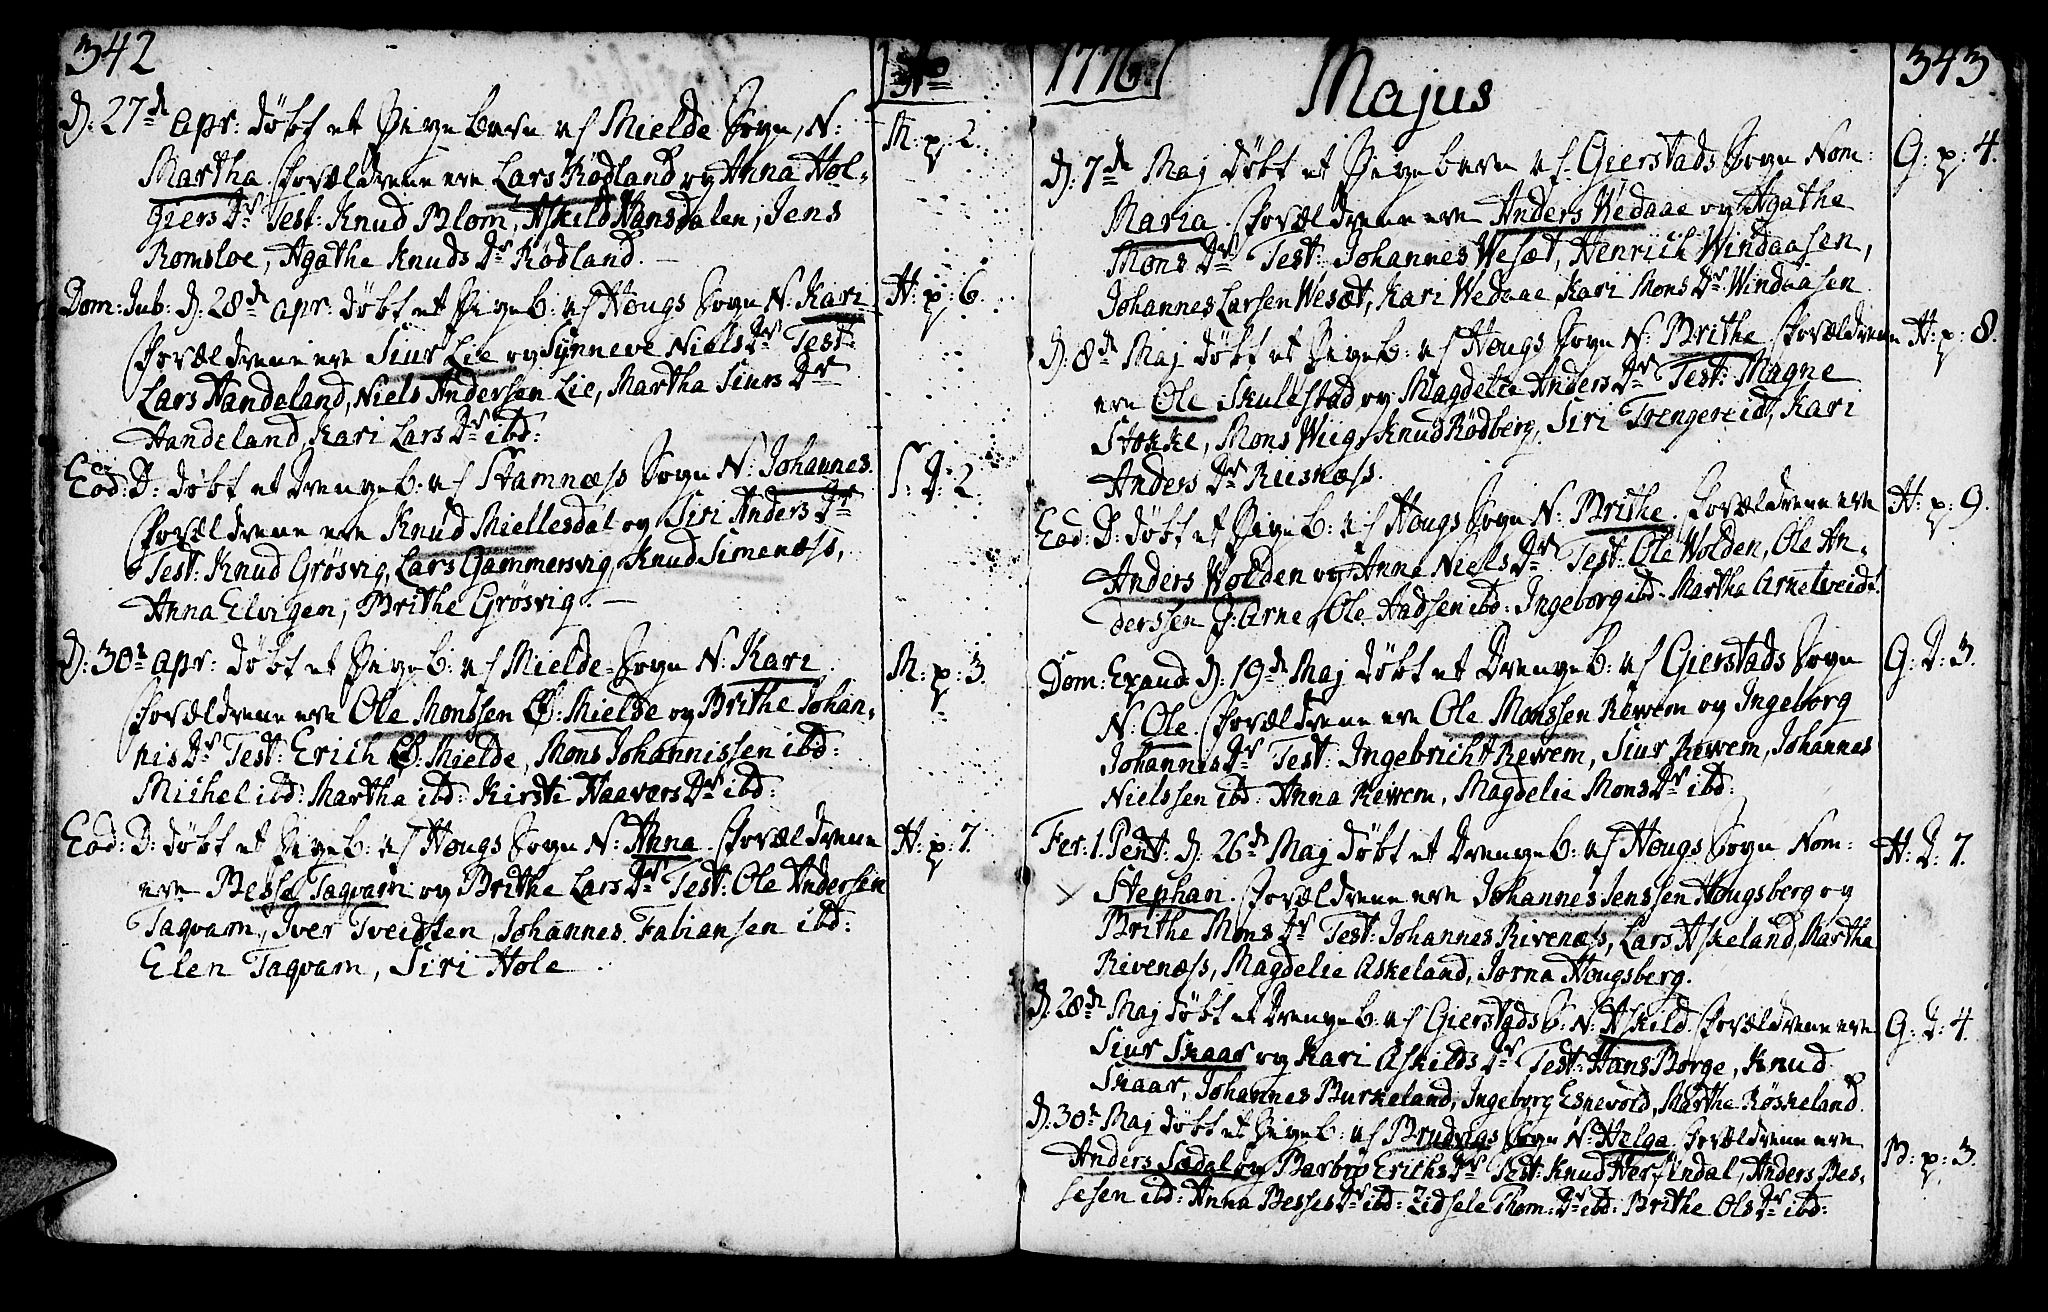 342
D: 27de Apr: døbt et Pigebarn af Mielde Sogn, N: M: p: 2.
Martha. Forældrene ere Lars Rødland og Anna Hol-
giers Dr Test: Knud Blom, Askild Vansdalen, Jens
Romsloe, Agathe Knuds Dr Rødland. —
Dom: Jub: D: 28de Apr: døbt et Pigeb: af Hougs Sogn N: Kari H: p: 6.
Forældrene ere Siur Lie og Synneve Niels Dr Test:
Lars Handeland, Niels Andersen Lie, Martha Siurs Dr
Handeland, Kari Lars Dr ibd:
Eod: D: døbt et Drengeb: af Stamnæss Sogn N: Johannes. S: D: 2.
Forældrene ere Knud Miellesdal og Siri Anders Dr
Test: Knud Grøsvig, Lars Gammersvig, Knud Simenæss,
Anna Elvigen, Brithe Grøsvig. —
D: 30te Apr: døbt et Pigeb: af Mielde Sogn N: Kari M: p: 3.
Forældrene ere Ole Monssen Ø: Mielde og Brithe Johan-
nis Dr Test: Erich Ø: Mielde, Mons Johannissen ibd:
Michel ibd: Martha ibd: Kirsti Haavers Dr ibd:
Eod: D: døbt et Pigeb: af Hougs Sogn N: Anna. Forældrene H: p: 7.
ere Besse Taqvam og Brithe Lars Dr Test: Ole Andersen
Taqvam, Iver Tveidten, Johannes Fabiansen ibd:
Elen Taqvam, Siri Hole.
1776. Majus 343
D: 7de Maj døbt et Pigebarn af Gierstads Sogn Nom: G: p: 4.
Maria. Forældrene ere Anders Wedaae og Agathe
Mons Dr Test: Johannes Wesæt, Henrich Windaasen,
Johannes Larsen Wesæt, Kari Wedaae, Kari Mons Dr Windaasen
D: 8de Maj døbt et Pigeb: af Hougs Sogn N: Brithe Forældrene H: p: 8.
ere Ole Skulestad og Magdelie Anders Dr Test: Magne
Stokke, Mons Wiig, Knud Rødberg, Siri Trengereid, Kari
Anders Dr Riisnæss.
Eod: D: døbt et Pigeb: af Hougs Sogn N: Brithe. Forældrene ere H: p: 9.
Anders Wolden og Anna Niels Dr Test: Ole Wolden, Ole An-
derssen Ø: Arne, Ole Aadsen ibd: Ingeborg ibd: Martha Arnetveidt
Dom: Exaud: D: 19de Maj døbt et Drengeb: af Gierstads Sogn G: D: 3.
N: Ole. Forældrene ere Ole Monssen Rewem og Ingeborg
Johannes Dr Test: Ingebricht Rewem, Siur Rewem, Johannes
Nielssen ibd: Anna Rewem, Magdelie Mons Dr ibd:
Fer: 1. Pent: D: 26de Maj døbt et Drengeb: af Hougs Sogn Nom: H: D: 7.
Stephan. Forældrene ere Johannes Jenssen Hougsberg og
Brithe Mons Dr Test: Johannes Rivenæss, Lars Askeland, Martha
Rivenæss, Magdelie Askeland, Jorna Hougsberg.
D: 28de Maj døbt et Drengeb: af Gierstads S: N: Askild. Forældrene ere G: D: 4.
Siur Skaar og Kari Askilds Dr Test: Hans Borge, Knud
Skaar, Johannes Burkeland, Ingeborg Esnevold, Martha Røskeland.
D: 30te Maj døbt et Pigeb: af Brudvigs Sogn N: Helga. Forældrene ere B: p: 3.
Anders Sædal og Barbro Erichs Dr Test: Knud Herfindal, Anders Bes-
sesen ibd: Anna Besses Dr ibd: Zidsele Thom: Dr ibd: Brithe Ols Dr ibd: